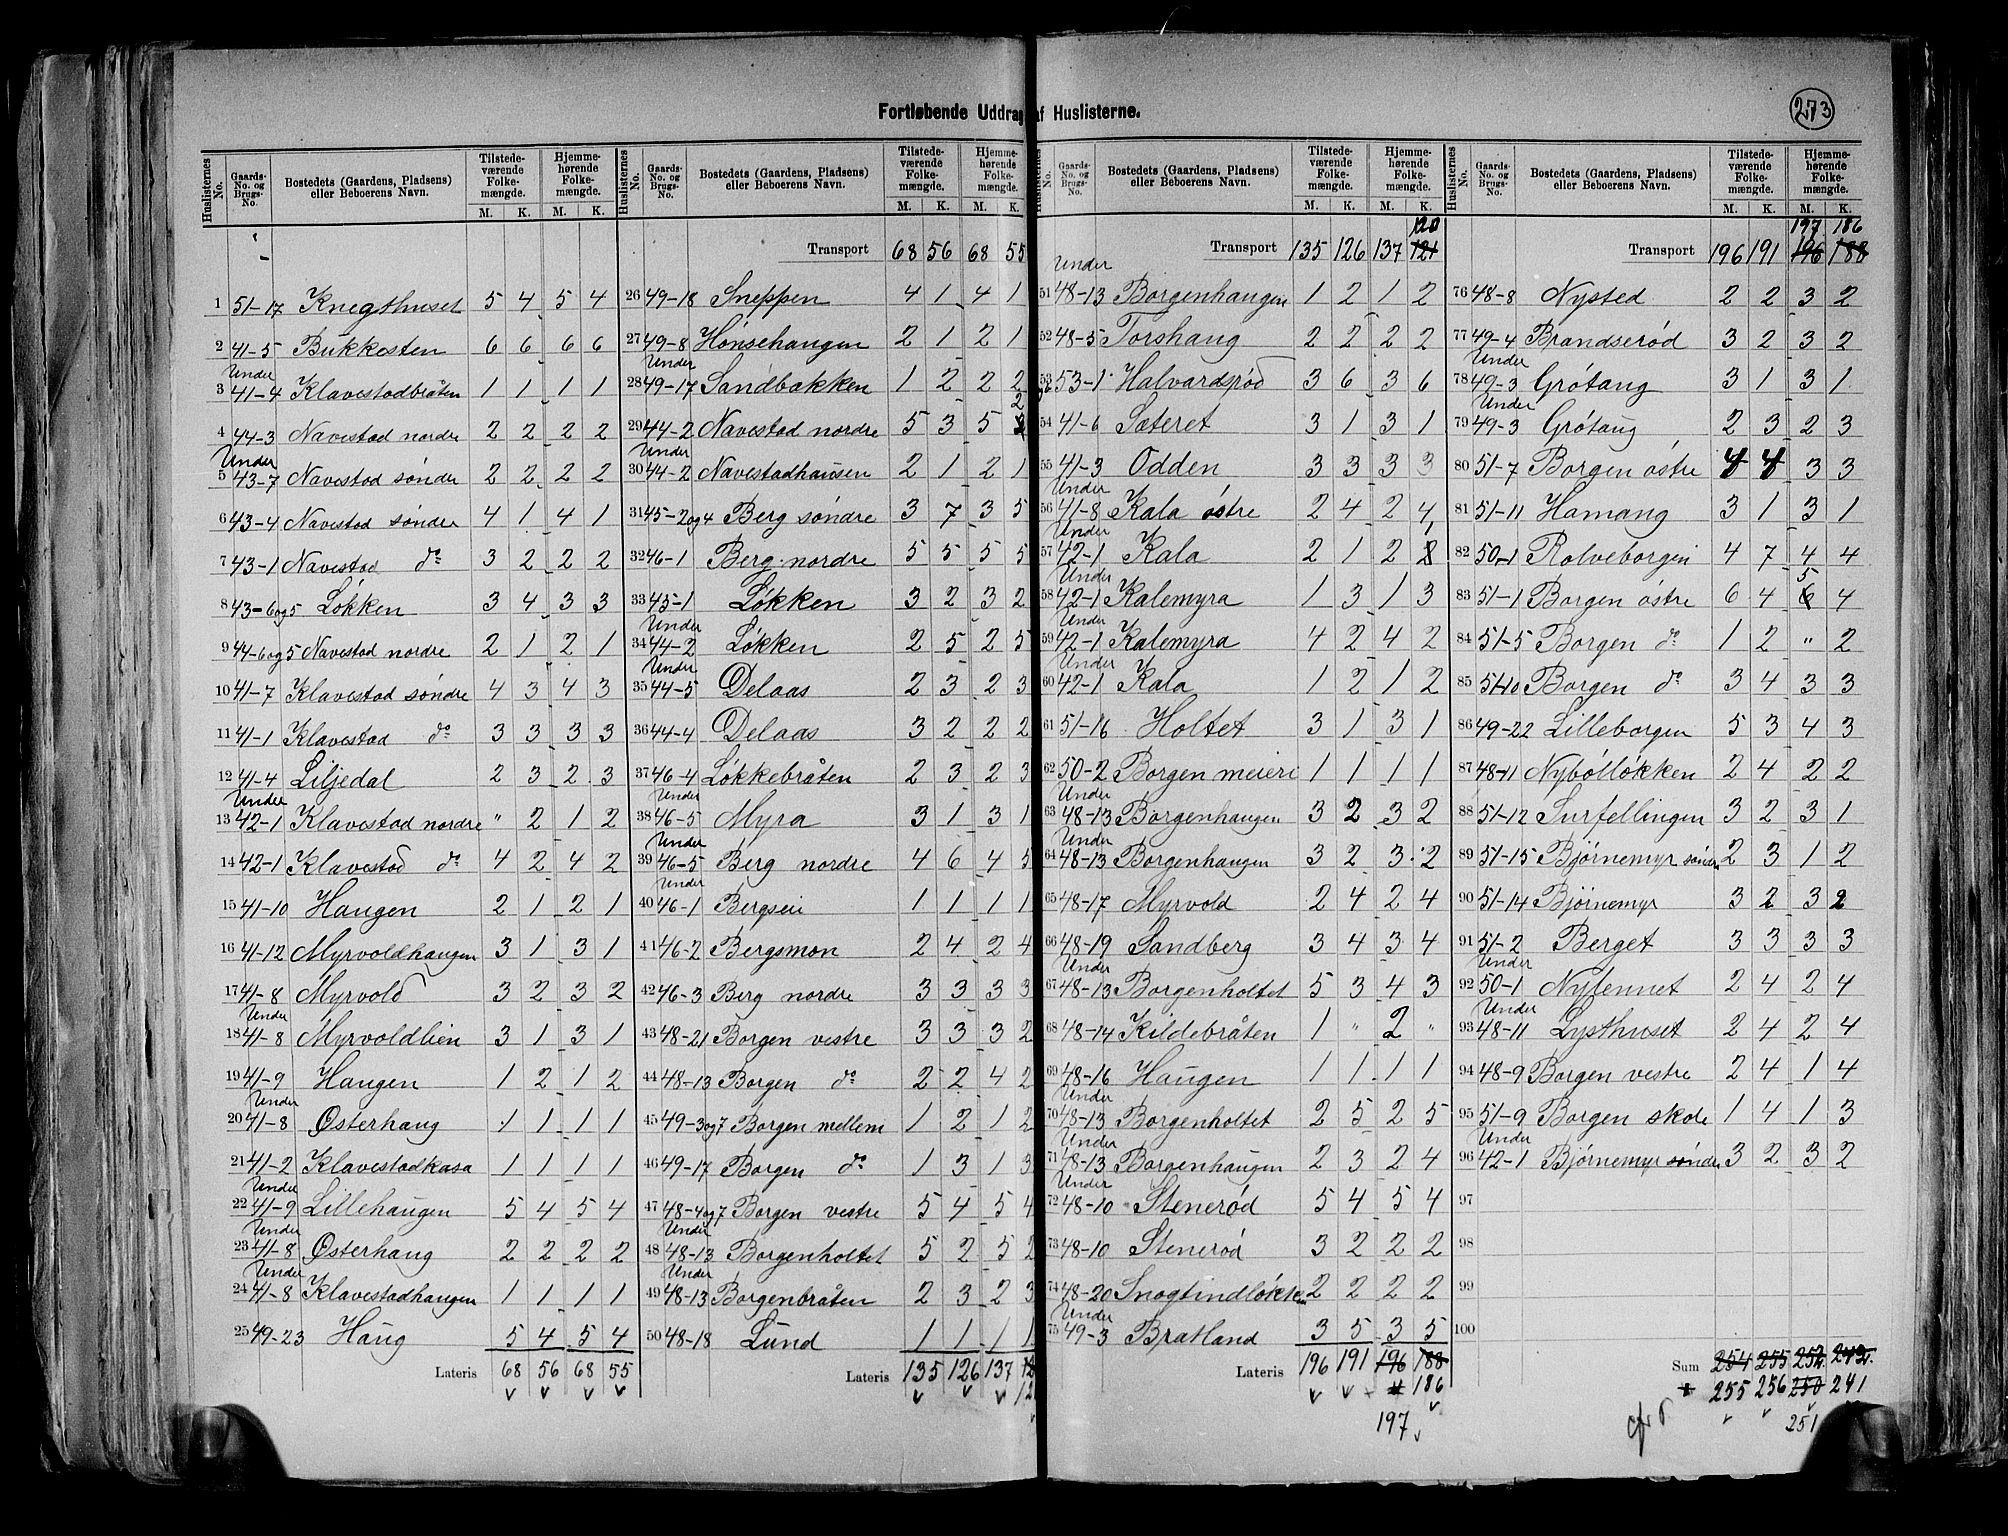 Fortløbende Uddrag af Huslisterne.
273
Huslisternes No. | Gaards-No. og Brugs-No. | Bostedets (Gaardens, Pladsens) eller Beboerens Navn. | Tilstedeværende Folkemængde. M. K. | Hjemmehørende Folkemængde. M. K.
1 51-17 Knegthuset 5 4 5 4
2 41-5 Bukkesten 6 6 6 6
Under
3 41-4 Klavestadbråten 1 1 1 1
4 44-3 Navestad nordre 2 2 2 2
Under
5 43-7 Navestad søndre 2 2 2 2
6 43-4 Navestad søndre 4 1 4 1
7 43-1 Navestad do 3 2 2 2
8 43-6og5 Løkken 3 4 3 3
9 44-6og5 Navestad nordre 2 1 2 1
10 41-7 Klavestad søndre 4 3 4 3
11 41-1 Klavestad do 3 3 3 3
12 41-4 Liljedal 2 3 2 3
Under
13 42-1 Klavestad nordre " 2 1 2
14 42-1 Klavestad do 4 2 4 2
15 41-10 Haugen 2 1 2 1
16 41-12 Myrvoldhaugen 3 1 3 1
17 41-8 Myrvold 3 2 3 2
Under
18 41-8 Myrvoldlien 3 1 3 1
19 41-9 Haugen 1 2 1 2
Under
20 41-8 Østerhaug 1 1 1 1
21 41-2 Klavestadkasa 1 1 1 1
Under
22 41-9 Lillehaugen 5 4 5 4
Under
23 41-8 Østerhaug 2 2 2 2
Under
24 41-8 Klavestadhaugen 1 1 1 1
25 49-23 Haug 5 4 5 4
Lateris 68 56 68 55
Huslisternes No. | Gaards-No. og Brugs-No. | Bostedets (Gaardens, Pladsens) eller Beboerens Navn. | Tilstedeværende Folkemængde. M. K. | Hjemmehørende Folkemængde. M. K.
Transport 68 56 68 55
26 49-18 Sneppen 4 1 4 1
27 49-8 Hønsehaugen 2 1 2 1
Under
28 49-17 Sandbakken 1 2 2 2
29 44-2 Navestad nordre 5 3 5 2
Under
30 44-2 Navestadhausen 2 1 2 1
31 45-2og4 Berg søndre 3 7 3 5
32 46-1 Berg nordre 5 5 5 5
33 45-1 Løkken 3 2 3 2
Under
34 44-2 Løkken 2 5 2 5
Under
35 44-5 Delaas 2 3 2 3
36 44-4 Delaas 3 2 2 2
37 46-4 Løkkebråten 2 3 2 3
Under
38 46-5 Myra 3 1 3 1
Under
39 46-5 Berg nordre 4 6 4 5
Under
40 46-1 Bergseii 1 1 1 1
41 46-2 Bergsmon 2 4 2 4
42 46-3 Berg nordre 3 3 3 3
43 48-21 Borgen vestre 3 3 3 2
44 48-13 Borgen do 2 2 4 2
45 49-3og7 Borgen mellem 1 2 1 2
46 49-17 Borgen do 1 3 1 3
47 48-4og7 Borgen vestre 5 4 5 4
Under
48 48-13 Borgenholtet 5 2 5 2
Under
49 48-13 Borgenbråten 2 3 2 3
50 48-18 Lund 1 1 1 1
Lateris 135 126 137 12
Huslisternes No. | Gaards-No. og Brugs-No. | Bostedets (Gaardens, Pladsens) eller Beboerens Navn. | Tilstedeværende Folkemængde. M. K. | Hjemmehørende Folkemængde. M. K.
120
Transport 135 126 137 121
Under
51 48-13 Borgenhaugen 1 2 1 2
52 48-5 Torshaug 2 2 2 2
53 53-1 Halvardsrød 3 6 3 6
54 41-6 Sæteret 3 1 3 1
55 41-3 Odden 3 3 3 3
Under
56 41-8 Kala østre 2 4 2 4
Under
57 42-1 Kala 2 1 2 1
Under
58 42-1 Kalemyra 1 3 1 3
Under
59 42-1 Kalemyra 4 2 4 2
Under
60 42-1 Kala 1 2 1 2
61 51-16 Holtet 3 1 3 1
62 50-2 Borgen meieri 1 1 1 1
Under
63 48-13 Borgenhaugen 3 2 3 2
Under
64 48-13 Borgenhaugen 3 2 3 2
65 48-17 Myrvold 2 4 2 4
66 48-19 Sandberg 3 4 3 4
Under
67 48-13 Borgenholtet 5 3 4 3
68 48-14 Kildebråten 1 " 2 "
69 48-16 Haugen 1 1 1 1
Under
70 48-13 Borgenholtet 2 5 2 5
Under
71 48-13 Borgenhaugen 2 3 2 4
Under
72 48-10 Stenerød 5 4 5 4
73 48-10 Stenerød 3 2 2 2
74 48-20 Snogtindløkken 2 2 2 2
Under
75 49-3 Bratland 3 5 3 5
Lateris 196 191 196 188
186
197
Huslisternes No. | Gaards-No. og Brugs-No. | Bostedets (Gaardens, Pladsens) eller Beboerens Navn. | Tilstedeværende Folkemængde. M. K. | Hjemmehørende Folkemængde. M. K.
197 186
Transport 196 191 196 188
76 48-8 Nysted 2 2 3 2
77 49-4 Brandserød 3 2 3 2
Under
78 49-3 Grøtaug 3 1 3 1
Under
79 49-3 Grøtaug 2 3 2 3
80 51-7 Borgen østre 4 4 3 3
81 51-11 Hamang 3 1 3 1
82 50-1 Rolveborgen 4 7 4 4
83 51-1 Borgen østre 6 4 5 4
84 51-5 Borgen do 1 2 " 2
85 51-10 Borgen do 3 4 3 3
86 49-22 Lilleborgen 5 3 4 3
87 48-11 Nybølløkken 2 4 2 2
88 51-12 Surfellingen 3 2 3 1
89 51-15 Bjørnemyr søndre 2 3 1 2
90 51-14 Bjørnemyr 3 2 3 2
91 51-2 Berget 3 3 3 3
Under
92 50-1 Nylennet 2 4 2 4
Under
93 48-11 Lysthuset 2 4 2 4
94 48-9 Borgen vestre 2 4 1 4
95 51-9 Borgen skole 1 4 1 3
Under
96 42-1 Bjørnemyr søndre 3 2 3 2
97
98
99
100
Sum 254 255 252 242
255 256 250 241
251